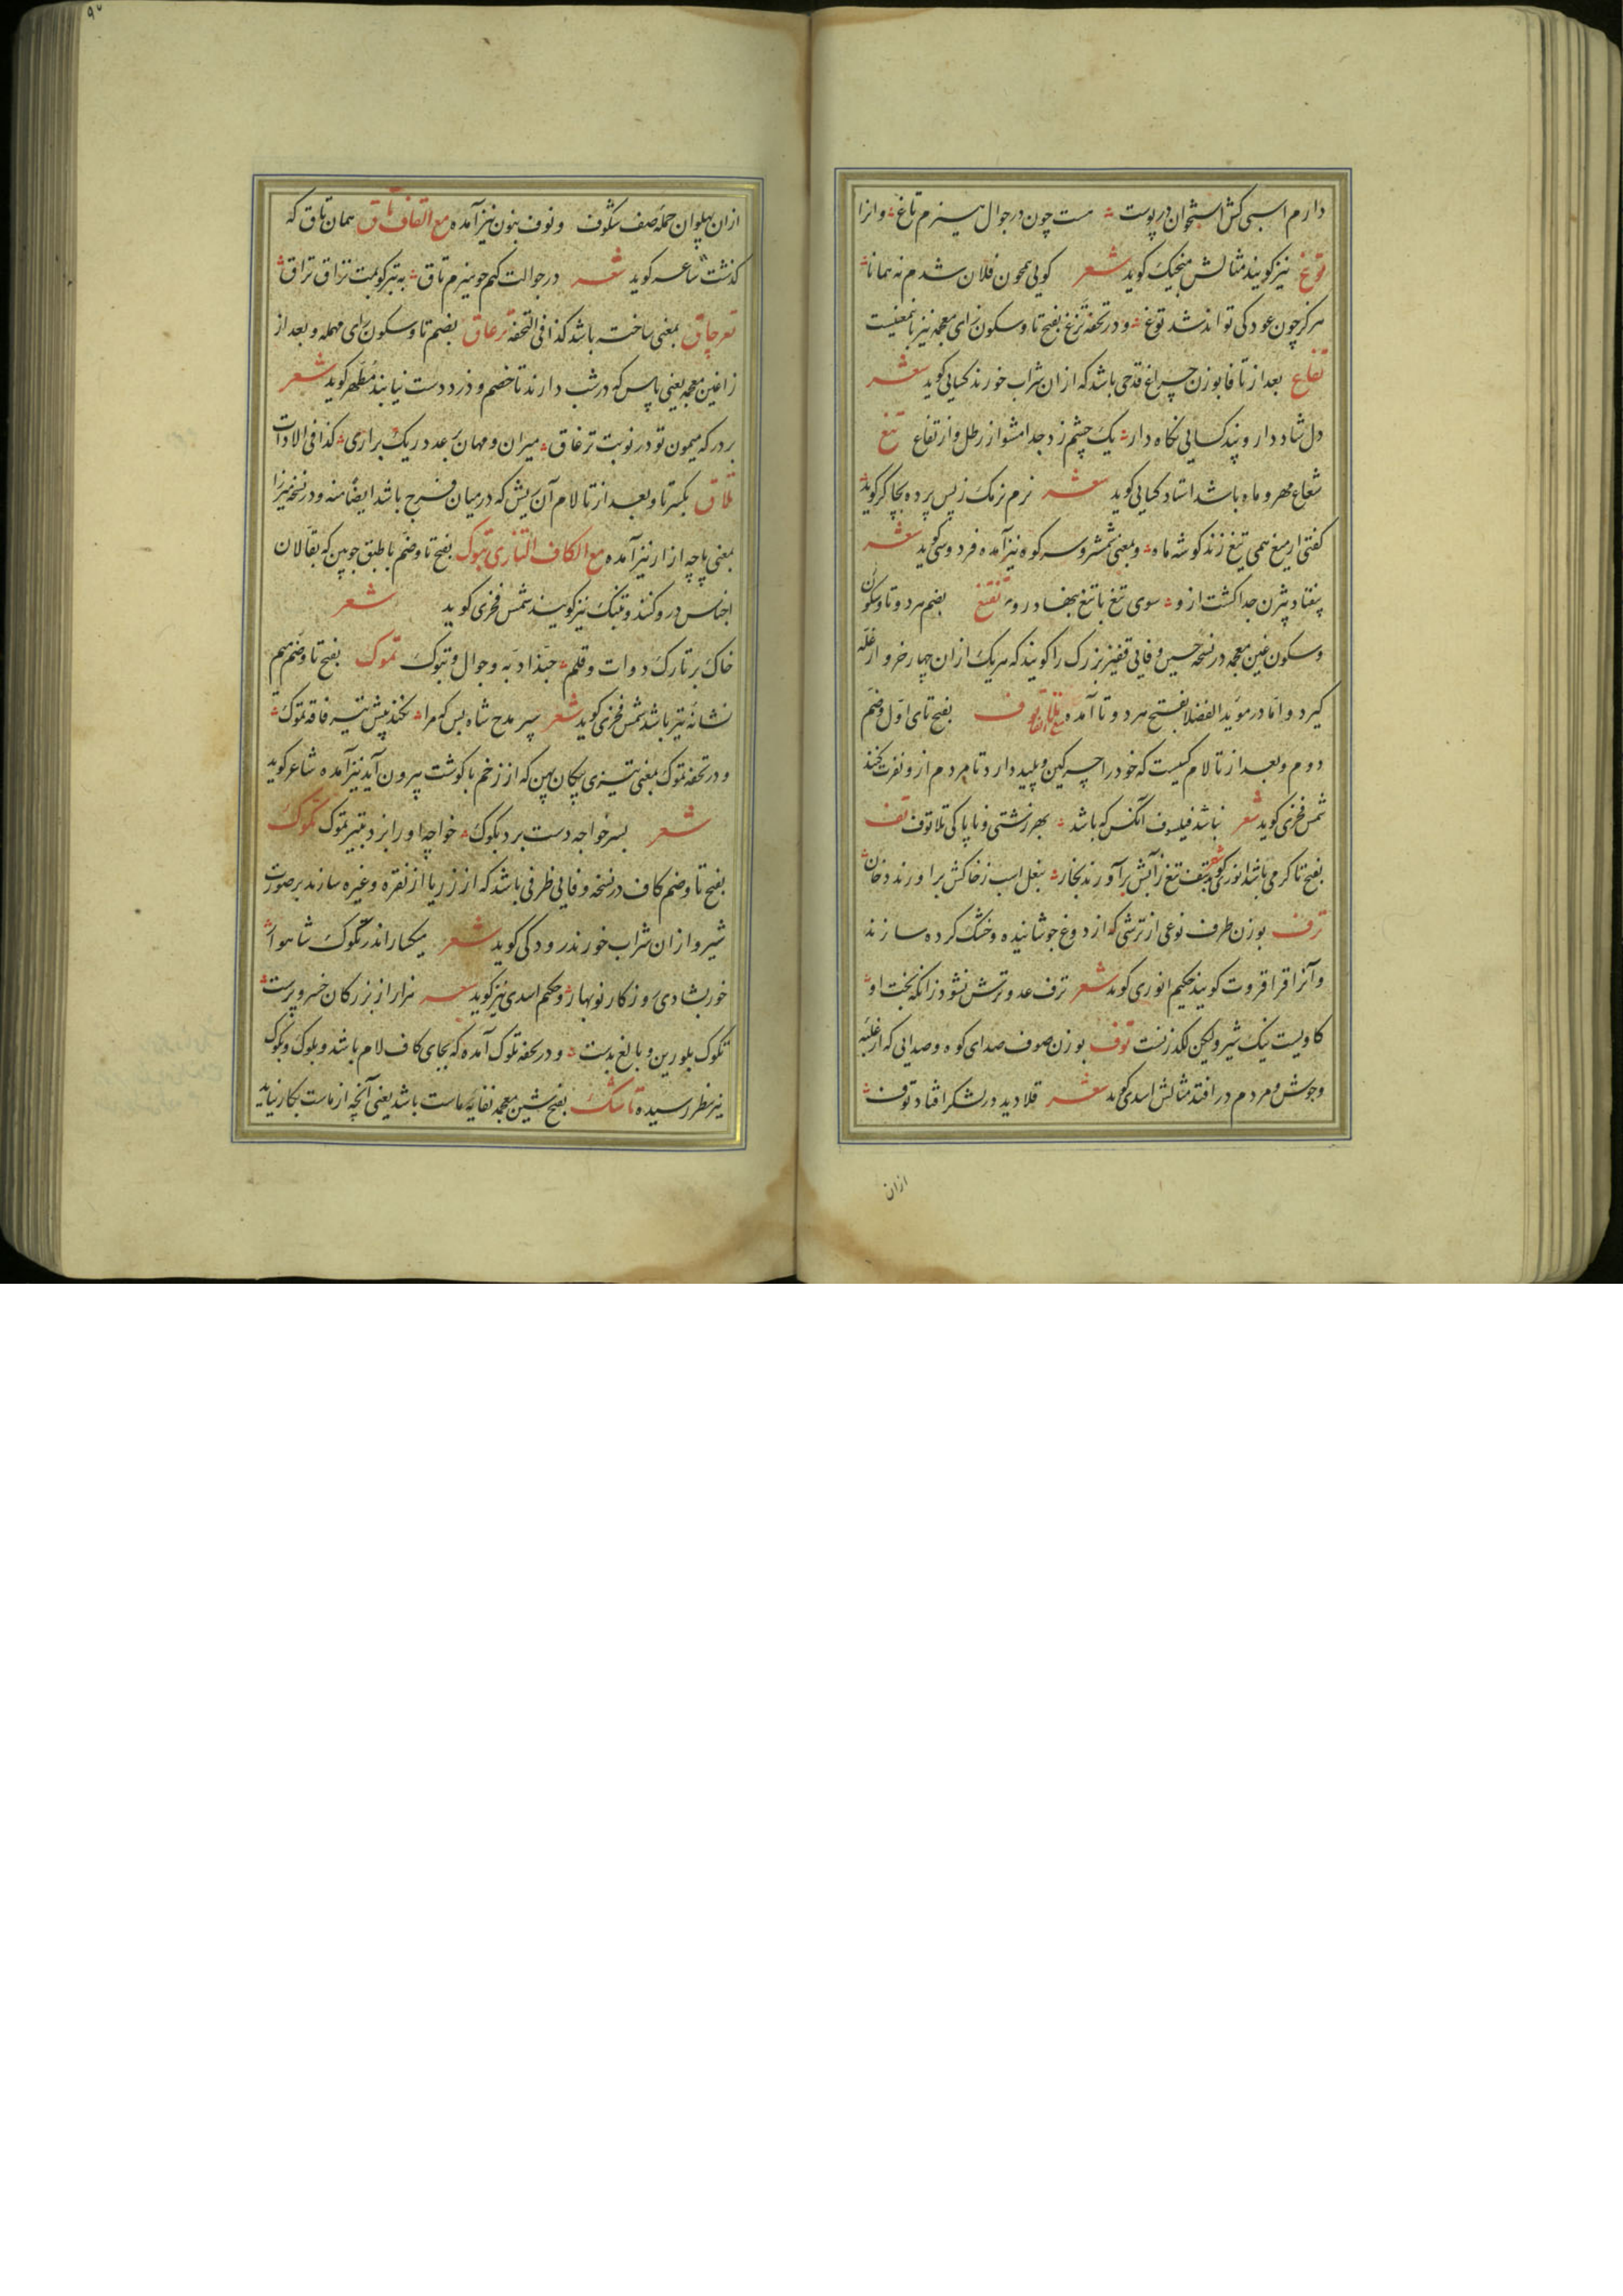 دارم اسبی کش استخوان در پوست هست چون در جوال هیزم تاغ وانرا
توغ نیز گویند مثالش منجیک گوید شعر گویی همچون فلان شدم نه همانا
هرگز چون عود کی تواند شد توغ و در تحفه تزغ بفتح تا و سکون زای معجمه نیز بمعنیست
تفاغ بعد از تا فا بوزن چراغ قدحی باشد که ازان شراب خورند کسایی گوید شعر
دل شاد دار و پند کسایی نگاه دار یک چشم زد جدا مشو از رطل و از تفاغ تیغ
شعاع مهر و ماه باشد استاد کسایی گوید شعر نرم نرمک ز پس پرده بچاکر گوید
گفتی از میغ همی تیغ زند گوشه ماه و بمعنی شمشیر و سر کوه نیز آمده فردوسی گوید شعر
بیفتاد بیژن جدا گشت ازو سوی تیغ با تیغ بنهاد رو تغتغ بضم هر دو تا و سکون
و سکون غین معجمه در نسخه حسین وفایی قفیز بزرگ را گویند که هر یک ازان چهار خروار غله
گیرد و اما در مؤید الفضلا بفتح هر دو تا آمده مع الفا تلاتوف بفتح تای اول و ضم
دوم و بعد از تا لام کسیست که خود را چرکین و پلید دارد تا مردم ازو نفرت کنند
شمس فخری گوید شعر نباشد فیلسوف آنکس که باشد بهر زشتی و ناپاکی تلاتوف تف
بفتح تا گرمی باشد انوری گوید شعر بتف تیغ ز آتش برآورند بخار بنعل اسب ز خاکش براورند دخان
ترف بوزن طرف نوعی از ترشی که از دوغ جوشانیده و خشک کرده سازند
و آنرا قراقروت گویند حکیم انوری گوید شعر ترف عدو ترش نشود زانکه بخت او
گاویست نیک شیر ولیکن لگد زنست توف بوزن صوف صدای کوه و صدایی که از غلبه
وجوش و مردم در افتد مثالش اسدی گوید شعر قلا دید در لشکر افتاد توف
ازان
ازان پهلوان حمله صف شکوف و نوف بنون نیز آمده مع القاف تاق همان تاق که
گذشت شاعر گوید شعر در جوالت کنم چو هیزم تاق به تبر کوبمت تراق تراق
تعرجاق بمعنی ساخت باشد کذا فی التحفه ترغاق بضم تا و سکون رای مهمله و بعد از
زا غین معجمه یعنی پاس که در شب دارند تا خصم و دزد دست نیابند مظهر گوید شعر
بر درکه میمون تو در نوبت ترغاق میران و مهان بعدد ریگ براری کذا فی الادات
تلاق بکسر تا و بعد از تا لام آن ریش که در میان فرج باشد ایضا منه و در نسخه میرزا
بمعنی پاچه ازار نیز آمده مع الکاف التازی تبوک بفتح تا و ضم با طبق چوبین که بقالان
اجناس درو کنند و تبنک نیز گویند شمس فخری گوید شعر
خاک بر تارک دوات و قلم حبذا دبه و جوال و تبوک تموک بفتح تا و ضم میم
نشانه تیر باشد شمس فخری گوید شعر سپر مدح شاه بس که مرا نکند پیش تیر فاقه تموک
و در تحفه تموک بمعنی تیری پیکان پهن که از زخم با گوشت بیرون آید نیز آمده شاعر گوید
شعر بسر خواجه دست برد بکوک خواجه او را بزد بتیر تموک تکوک
بفتح تا و ضم کاف در نسخه وفایی ظرفی باشد که از زر یا از نقره و غیره سازند بر صورت
شیر و ازان شراب خورند رودکی گوید شعر می کسار اندر تکوک شاهوار
خور بشادی روزگار نوبهار و حکیم اسدی نیز گوید شعر هزار از بزرگان خسرو پرست
تکوک بلورین و بالغ بدست و در تحفه تلوک آمده که بجای کاف لام باشد و بلوک و بکوک
نیز بنظر رسیده تاشک بفتح شین معجمه نفایه ماست باشد یعنی آنچه از ماست بکار نیاید